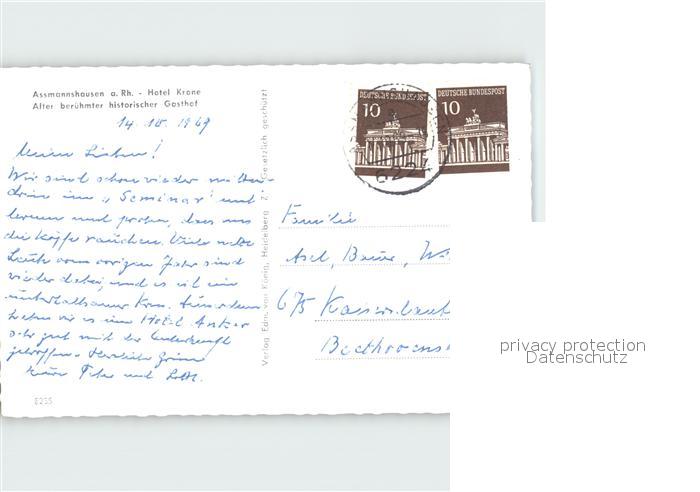 Assmannshausen a. Rh. - Hotel Krone
Alter berühmter historischer Gasthof
14. 10. 1969
Meine Lieben!
Wir sind schon wieder mitten-
drin im „Seminar" und
lernen und proben, dass uns
die Köpfe rauchen. Viele nette
Leute vom vorigen Jahr sind
wieder dabei, und es ist ein
unterhaltsamer Krs. Ausserdem
haben wir es im Hotel Anker
sehr gut mit der Unterkunft
getroffen. Herzliche Grüsse
Eure und Lotte.
E255
Verlag Edm. von König, Heidelberg Gesetzlich geschützt
DEUTSCHE BUNDESPOST
10
DEUTSCHE BUNDESPOST
10
6224
Familie
Axel, Bauer,
675 Kaiserslaut
Beethovens
privacy protection
Datenschutz